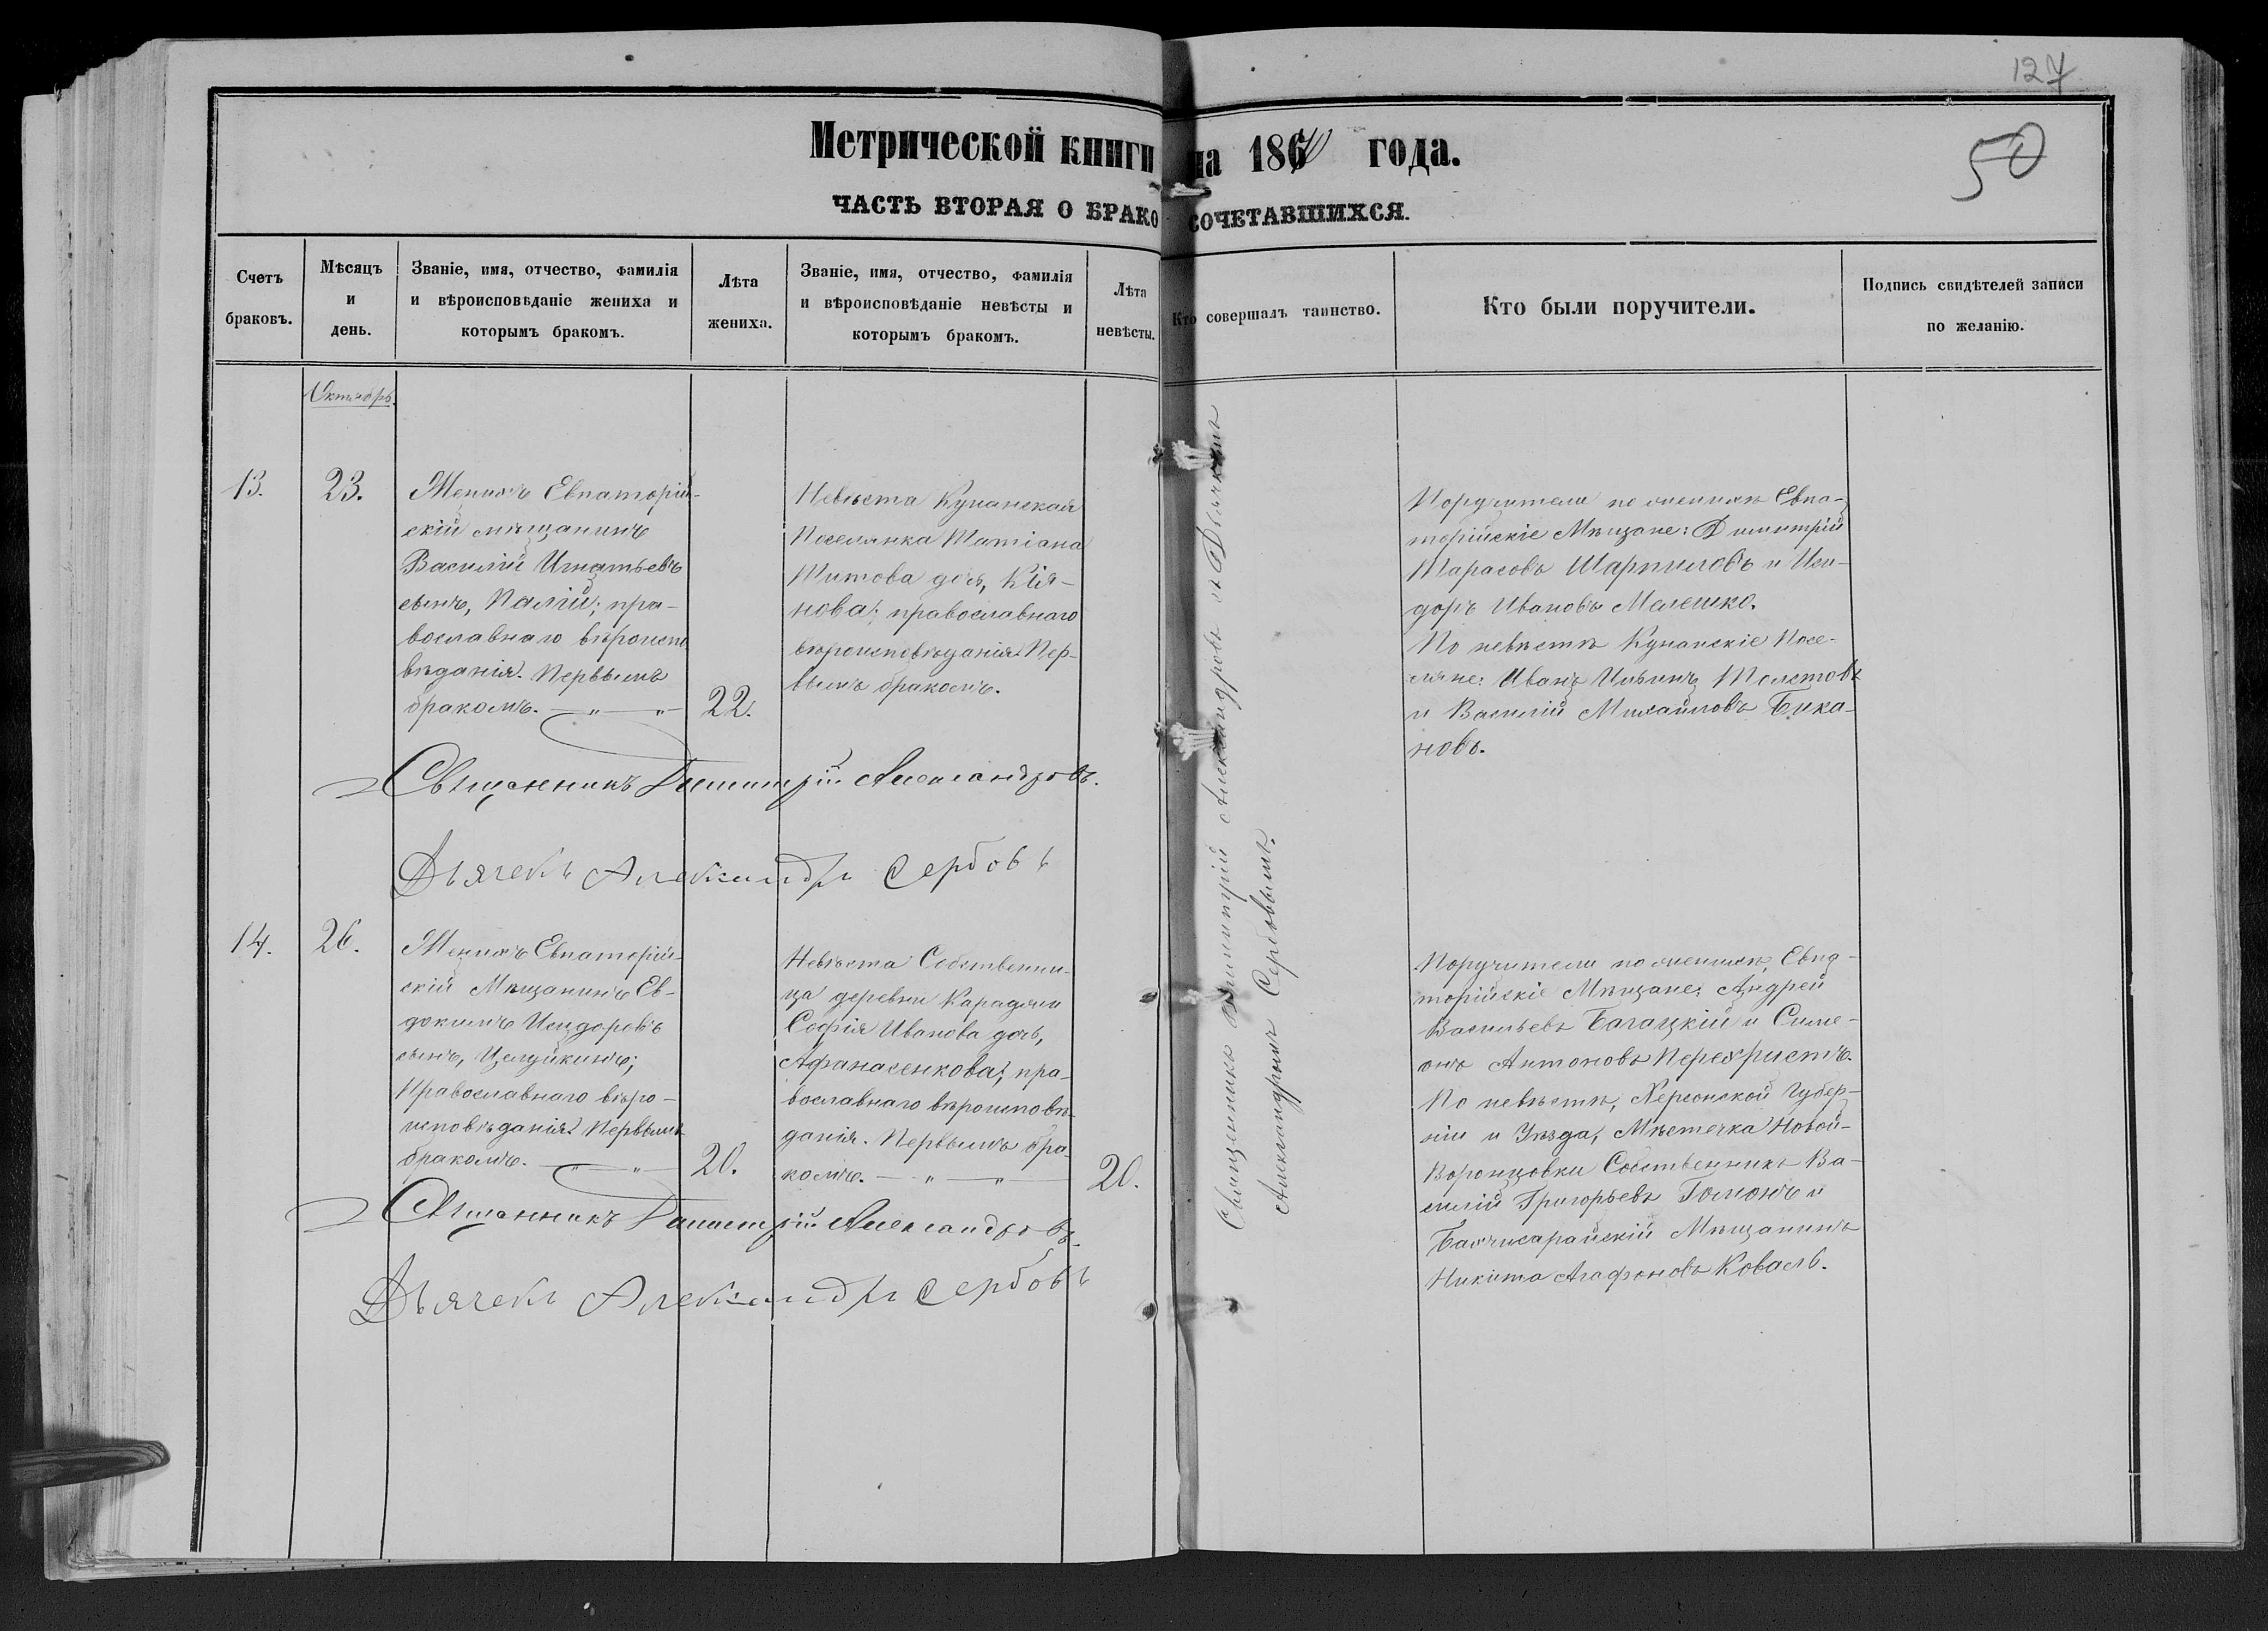 127
Метрической книги на 186 года.
50
ЧАСТЬ ВТОРАЯ О БРАКОСОЧЕТАВШИХСЯ.
Счетъ
браковъ.
Мѣсяцъ
и
день.
Званіе, имя, отчество, фамилія
и вѣроисповѣданіе жениха и
которымъ бракомъ.
Лѣта
жениха.
Званіе, имя, отчество, фамилія
и вѣроисповѣданіе невѣсты и
которымъ бракомъ.
Лѣта
невѣсты.
Кто совершалъ таинство.
Кто были поручители.
Подпись свидѣтелей записи
по желанію.
Октябрь.
13.
23.
Женихъ Евпаторій-
скій мѣщанинъ
Василій Игнатьевъ
сынъ, Палій; пра-
вославнаго вѣроиспо
вѣданія. Первымъ
бракомъ.
22.
Невѣста Кунанская
Поселянка Татіана
Титова дочь,
нова; православнаго
вѣроисповѣданія. Пер-
вымъ бракомъ.
Священникъ Димитрій Александровъ.
Дьячекъ Александръ Сербовъ
Священникъ Димитрій Александровъ съ Дьячкомъ
Александромъ Сербовымъ.
Поручители по женихѣ Евпа-
торійскіе Мѣщане: Димитрій
Тарасовъ Шарпиловъ и Иси-
доръ Ивановъ Мелешко.
По невѣстѣ Кунанскіе Посе-
ляне: Иванъ Ильинъ Толстовъ
и Василій Михайловъ Бика-
новъ.
14.
26.
Женихъ Евпаторій-
скій Мѣщанинъ Ев-
докимъ Исидоровъ
сынъ, Целуйкинъ;
Православнаго вѣро-
исповѣданія. Первымъ
бракомъ.
20.
Невѣста Собственни-
ца деревни Караджи
Софія Иванова дочь,
Афанасенкова; пра-
вославнаго вѣроисповѣ-
данія. Первымъ бра-
комъ.
20.
Священникъ Димитрій Александровъ.
Дьячекъ Александръ Сербовъ
Поручители по женихѣ, Евпа-
торійскіе Мѣщане: Андрей
Васильевъ Багацкій и Симе-
онъ Антоновъ Перехристъ.
По невѣстѣ, Херсонской Губер-
ніи и Уѣзда, Мѣстечка Новой-
Воронцовки Собственникъ Ва-
силій Григорьевъ Гомонъ и
Бахчисарайскій Мѣщанинъ
Никита Агафоновъ Коваль.